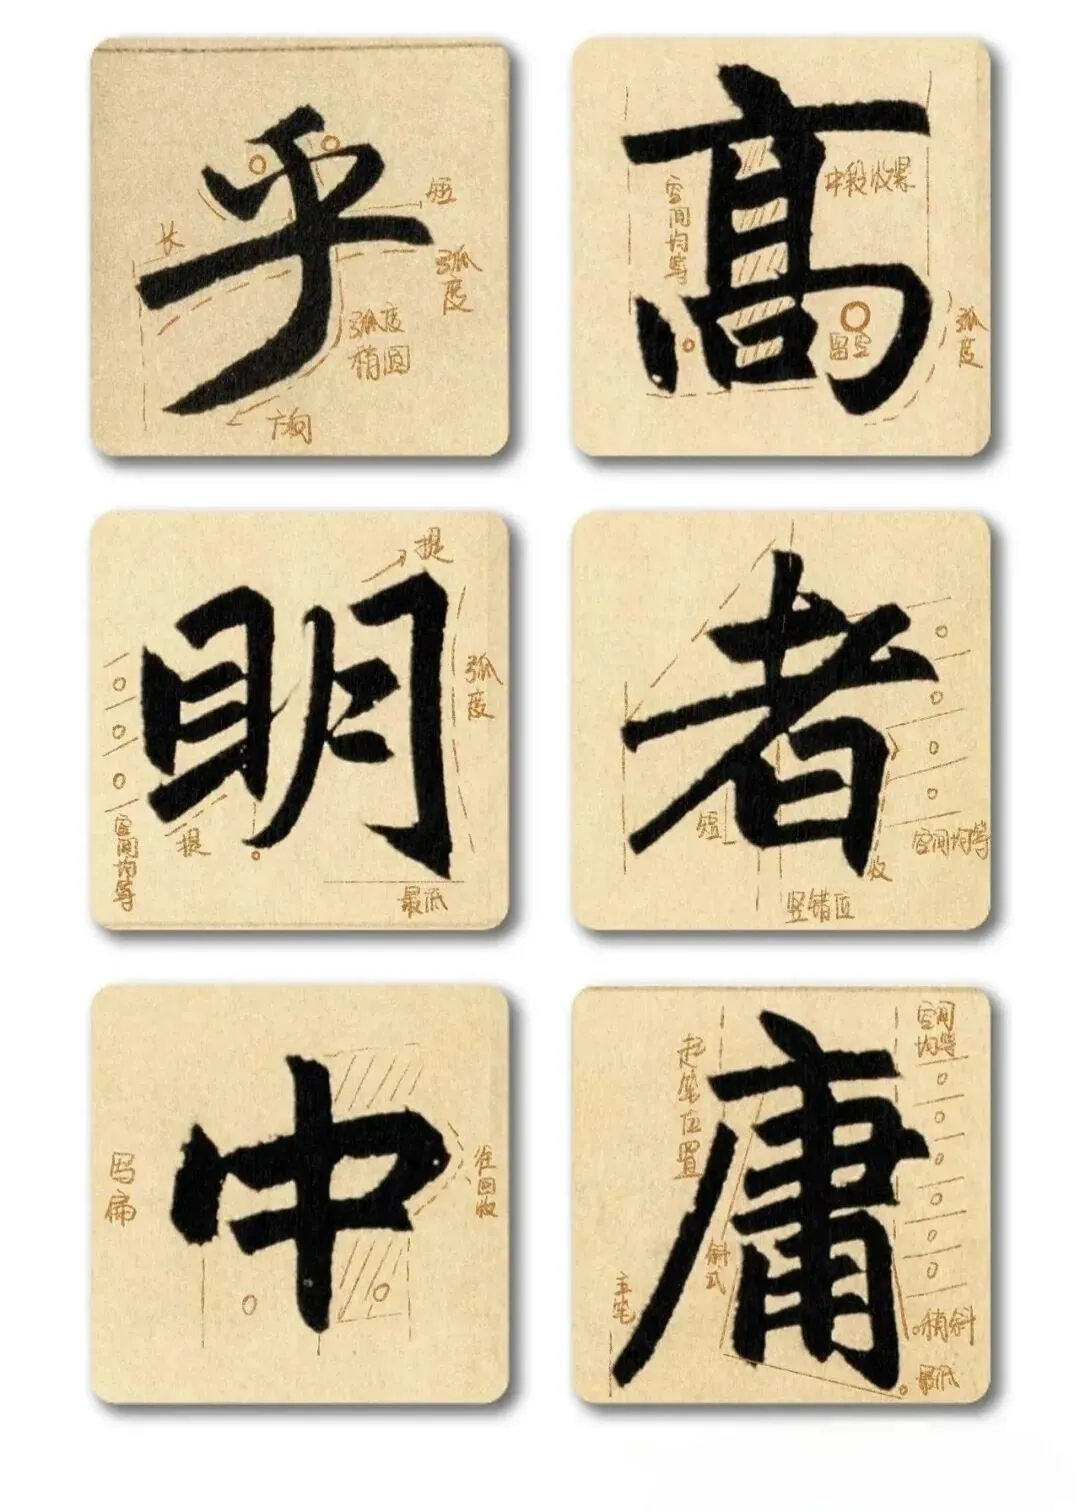 乎
短
长
弧度
弧度
稍圆
方向
高
中段收紧
空间均等
留空
弧度
明
提
弧度
提
空间均等
最低
者
短
空间均等
收
竖错位
中
写扁
往回收
庸
空间
均等
起笔位置
斜式
主笔
稍斜
最低